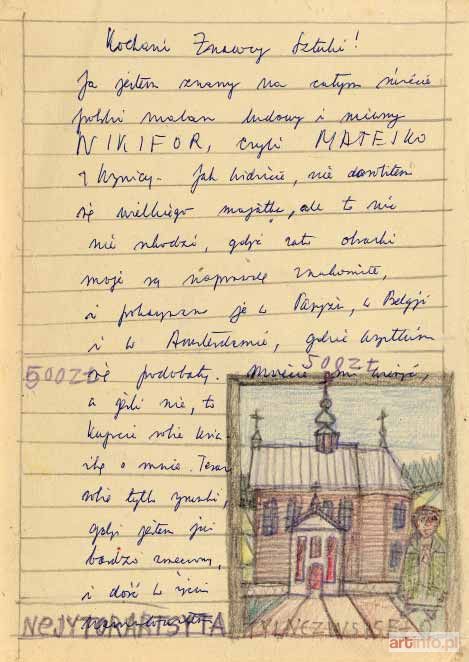 Kochani Znawcy Sztuki!
Ja jestem znany na całym świecie
polski malarz ludowy i niemy
NIKIFOR, czyli MATEJKO
z Krynicy. Jak widzicie, nie dorobiłem
się wielkiego majątku, ale to nic
nie szkodzi, gdyż za to obrazki
moje są naprawdę znakomite,
i pokazywano je w Paryżu, w Belgji
i w Amsterdamie, gdzie wszystkim
500ZŁ się podobały. Możecie mi wierzyć,
500ZŁ
a jeśli nie, to
kupcie sobie ksią-
żkę o mnie. Teraz
robię tylko rysunki,
gdyż jestem już
bardzo zmęczony,
i dość w życiu
NEJYTORARTSYTA
artinfo.pl